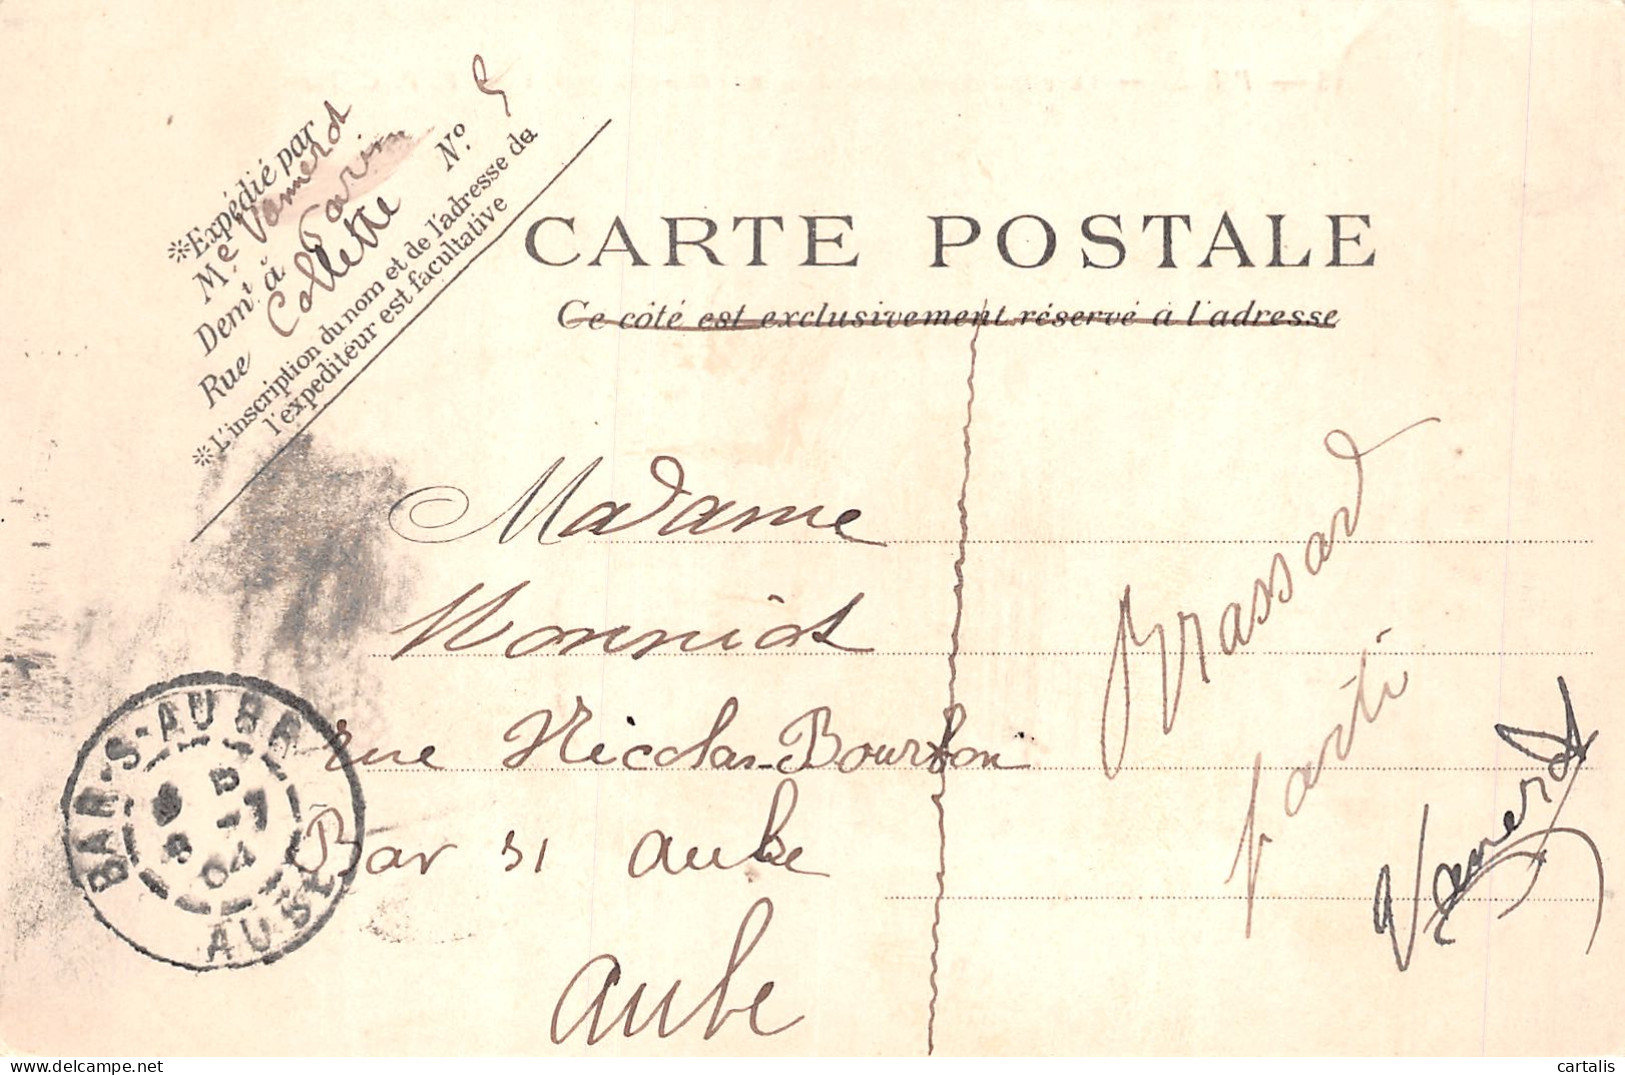 ※Expédié par
Me Vannerot
Demt à Paris
Rue Collette No. 5
※L'inscription du nom et de l'adresse de
l'expediteur est facultative
CARTE POSTALE
Ce côté est exclusivement réservé à l'adresse
Madame
Monniot
rue Nicolas Bourbon
Bar s/ aube
Aube
Brassard
parti
BAR-S-AUBE
04
AUBE
cartalis